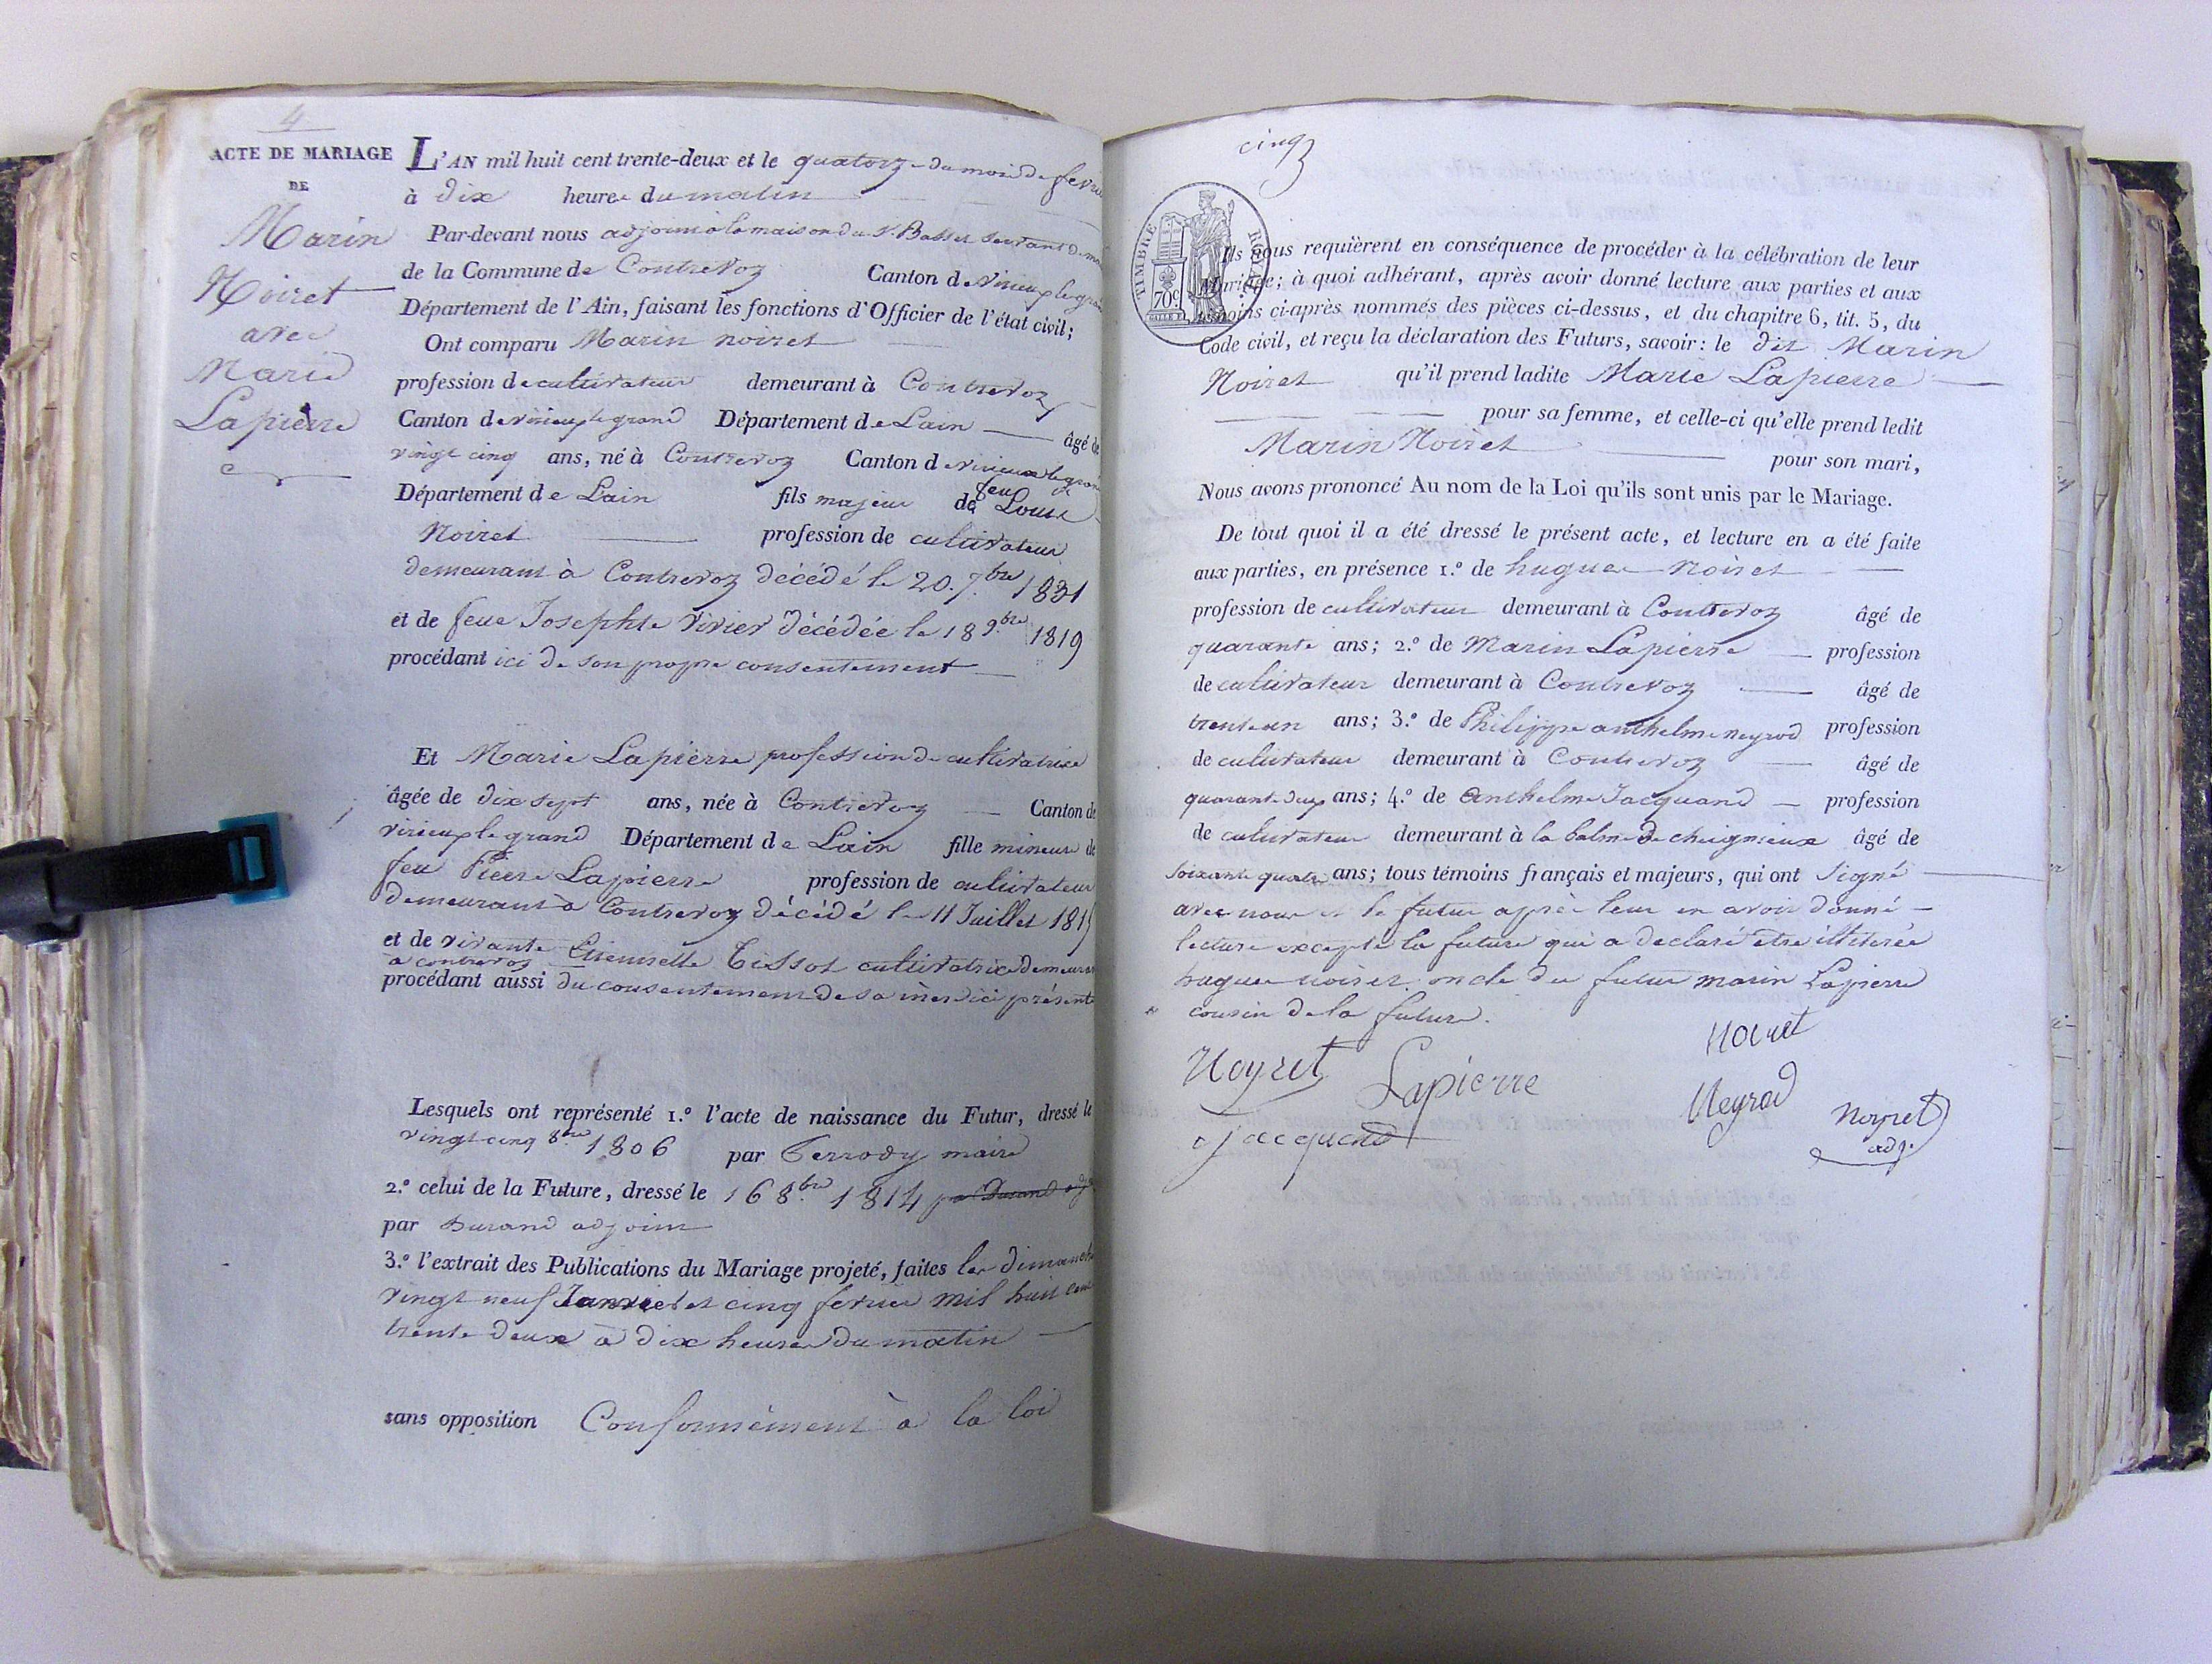 4
ACTE DE MARIAGE
DE
Marin
Noiret
avec
Marie
Lapierre
L'AN mil huit cent trente-deux et le quatorze du mois de fevrier
à dix heures du matin
Par-devant nous adjoint à la maison du S. Basset
de la Commune de Contrevoz Canton de virieux le grand
Département de l'Ain, faisant les fonctions d'Officier de l'état civil;
Ont comparu Marin noiret
profession de cultivateur demeurant à Contrevoz
Canton de virieux le grand Département de Lain âgé de
vingt cinq ans, né à Contrevoz Canton de virieux le grand
Département de Lain fils majeur de feu Louis
Noiret profession de cultivateur
demeurant à Contrevoz décédé le 20. 7.bre 1831
et de feue Josephte vivier décédée le 18 9.bre 1819
procédant ici de son propre consentement
Et Marie Lapierre profession de cultivatrice
âgée de dix sept ans, née à Contrevoz Canton de
virieux le grand Département de Lain fille mineure de
feu Pierre Lapierre profession de cultivateur
demeurant à Contrevoz décédé le 11 Juillet 1815
et de vivante Etiennette Tissot cultivatrice demeurant
a contrevoz
procédant aussi du consentement de sa mère ici présente
Lesquels ont représenté 1.º l'acte de naissance du Futur, dressé le
vingt cinq 8.bre 1806 par Terrody maire
2.º celui de la Future, dressé le 16 8.bre 1814 par Durand adj
par Durand adjoint
3.º l'extrait des Publications du Mariage projeté, faites les dimanche
vingt neuf Janvier et cinq fevrier mil huit cent
trente deux à dix heures du matin
sans opposition Conformément à la loi
cinq
TIMBRE ROYAL
70c
Ils nous requièrent en conséquence de procéder à la célébration de leur
Mariage; à quoi adhérant, après avoir donné lecture aux parties et aux
témoins ci-après nommés des pièces ci-dessus, et du chapitre 6, tit. 5, du
Code civil, et reçu la déclaration des Futurs, savoir: le dit Marin
Noiret qu'il prend ladite Marie Lapierre
pour sa femme, et celle-ci qu'elle prend ledit
Marin Noiret pour son mari,
Nous avons prononcé Au nom de la Loi qu'ils sont unis par le Mariage.
De tout quoi il a été dressé le présent acte, et lecture en a été faite
aux parties, en présence 1.º de hugues Noiret
profession de cultivateur demeurant à Contrevoz âgé de
quarante ans; 2.º de Marin Lapierre profession
de cultivateur demeurant à Contrevoz âgé de
trente un ans; 3.º de Philippe anthelme neyrod profession
de cultivateur demeurant à Contrevoz âgé de
quarante deux ans; 4.º de Anthelme Jacquand profession
de cultivateur demeurant à la balme de cheignieux âgé de
soixante quatre ans; tous témoins français et majeurs, qui ont signé
avec nous et le futur après leur en avoir donné
lecture excepté la future qui a declaré etre illiterée
hugues noiret oncle du futur marin Lapierre
cousin de la future.
Noyret Lapierre Noiret
Neyrod
Jacquand Noyret
adj.